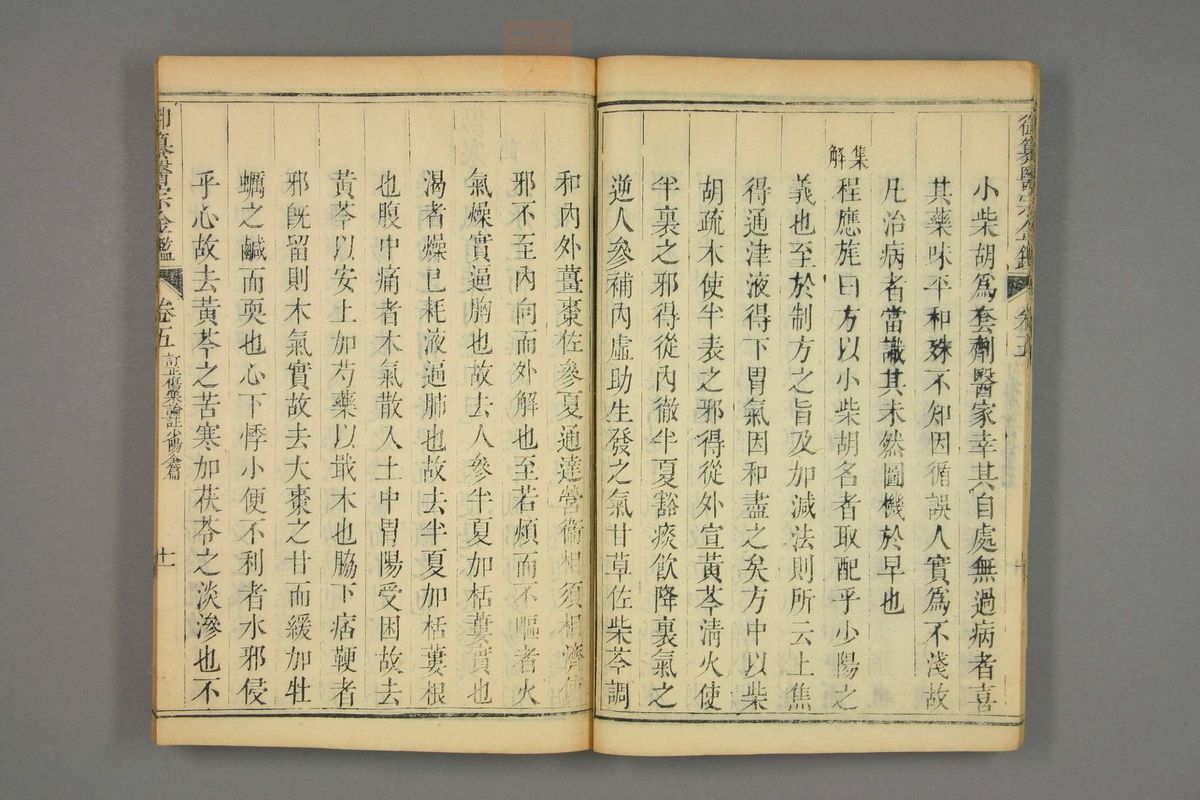 御纂醫宗金鑑 卷五
小柴胡爲套劑醫家幸其自處無過病者喜
其藥味平和殊不知因循誤人實爲不淺故
凡治病者當識其未然圖機於早也
集解
程應旄曰方以小柴胡名者取配乎少陽之
義也至於制方之旨及加減法則所云上焦
得通津液得下胃氣因和盡之矣方中以柴
胡疏木使半表之邪得從外宣黃芩淸火使
半裏之邪得從內徹半夏豁痰飲降裏氣之
逆人參補內虛助生發之氣甘草佐柴芩調
和內外薑棗佐參夏通達營衞相須相濟使
邪不至內向而外解也至若煩而不嘔者火
氣燥實逼胸也故去人參半夏加栝蔞實也
渴者燥已耗液逼肺也故去半夏加栝蔞根
也腹中痛者木氣散入土中胃陽受困故去
黃芩以安土加芍藥以戢木也脇下痞鞕者
邪旣留則木氣實故去大棗之甘而緩加牡
蠣之鹹而耎也心下悸小便不利者水邪侵
乎心故去黃芩之苦寒加茯苓之淡滲也不
御纂醫宗金鑑 卷五 訂正傷寒論註少陽全篇 廿一